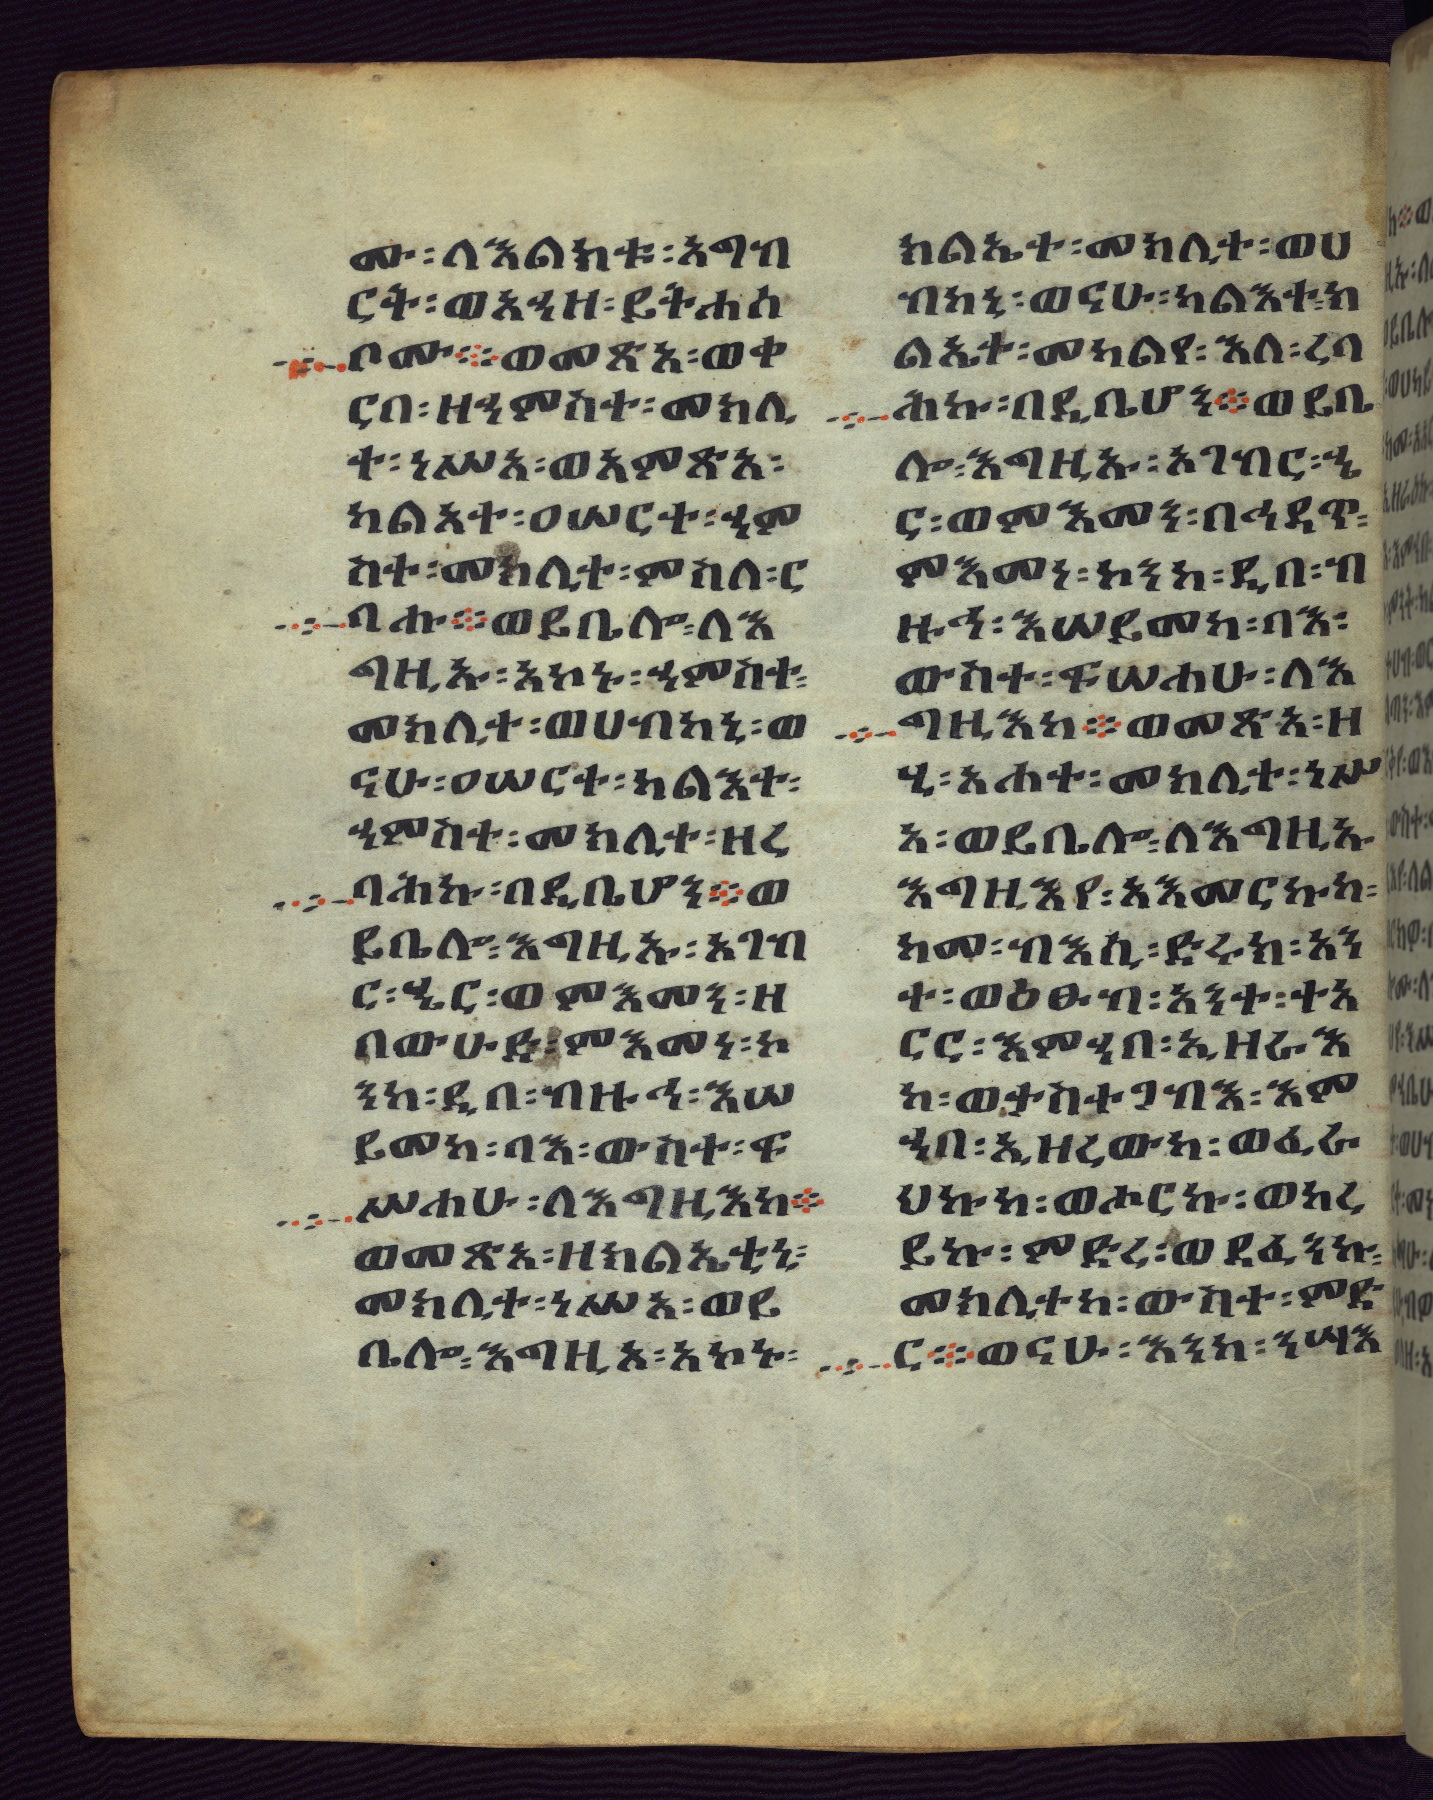 ሙ፡ለእልክቱ፡አግብ
ርት፡ወአኀዘ፡ይትሐሰ
ቦሙ፨ወመጽአ፡ወቀ
ርበ፡ዘኀምስተ፡መክሊ
ተ፡ነሥአ፡ወአምጽአ፡
ካልአተ፡ዐሠርተ፡ኃም
ስተ፡መክሊተ፡ምስለ፡ር
ባሑ፨ወይቤሎ፡ለእ
ግዚኡ፡አኮኑ፡ኃምስተ፡
መክሊተ፡ወሀብከኒ፡ወ
ናሁ፡ዐሠርተ፡ካልእተ፡
ኃምስተ፡መክሊተ፡ዘረ
ባሕኩ፡በዲቤሆን፨ወ
ይቤሎ፡እግዚኡ፡አገብ
ር፡ኄር፡ወምእመን፡ዘ
በውሁድ፡ምእመነ፡ኮ
ንከ፡ዲበ፡ብዙኅ፡እሠ
ይመከ፡ባእ፡ውስተ፡ፍ
ሥሐሁ፡ለእግዚእከ፨
ወመጽአ፡ዘክልኤቲኒ፡
መክሊተ፡ነሥአ፡ወይ
ቤሎ፡እግዚአ፡አኮኑ፡
ክልኤተ፡መክሊተ፡ወሀ
ብከኒ፡ወናሁ፡ካልእተ፡ክ
ልኤተ፡መካልየ፡እለ፡ረባ
ሕኩ፡በዲቤሆን፨ወይቤ
ሎ፡እግዚኡ፡አገብር፡ኄ
ር፡ወምእመን፡በኅዳጥ፡
ምእመነ፡ኮንከ፡ዲበ፡ብ
ዙኅ፡እሠይመከ፡ባእ፡
ውስተ፡ፍሠሐሁ፡ለእ
ግዚእከ፨ወመጽአ፡ዘ
ሂ፡አሐተ፡መክሊተ፡ነሥ
አ፡ወይቤሎ፡ለእግዚኡ
እግዚእየ፡አእመርኩከ፡
ከመ፡ብእሲ፡ድሩክ፡አን
ተ፡ወዕፁብ፡አንተ፡ተአ
ርር፡እምኃበ፡ኢዘራእ
ከ፡ወታስተጋብእ፡እም
ኃበ፡ኢዘረውከ፡ወፈራ
ህኩከ፡ወሖርኩ፡ወከረ
ይኩ፡ምድረ፡ወደፈንኩ፡
መክሊተከ፡ውስተ፡ምድ
ር፨ወናሁ፡እንከ፡ንሣእ